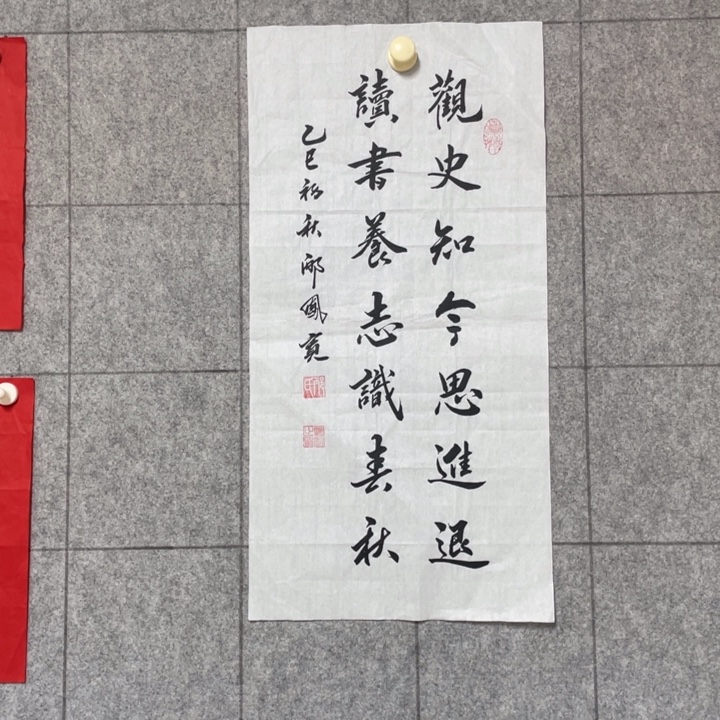 觀史知今思進退
讀書養志識春秋
乙巳初秋鄺鳳寬